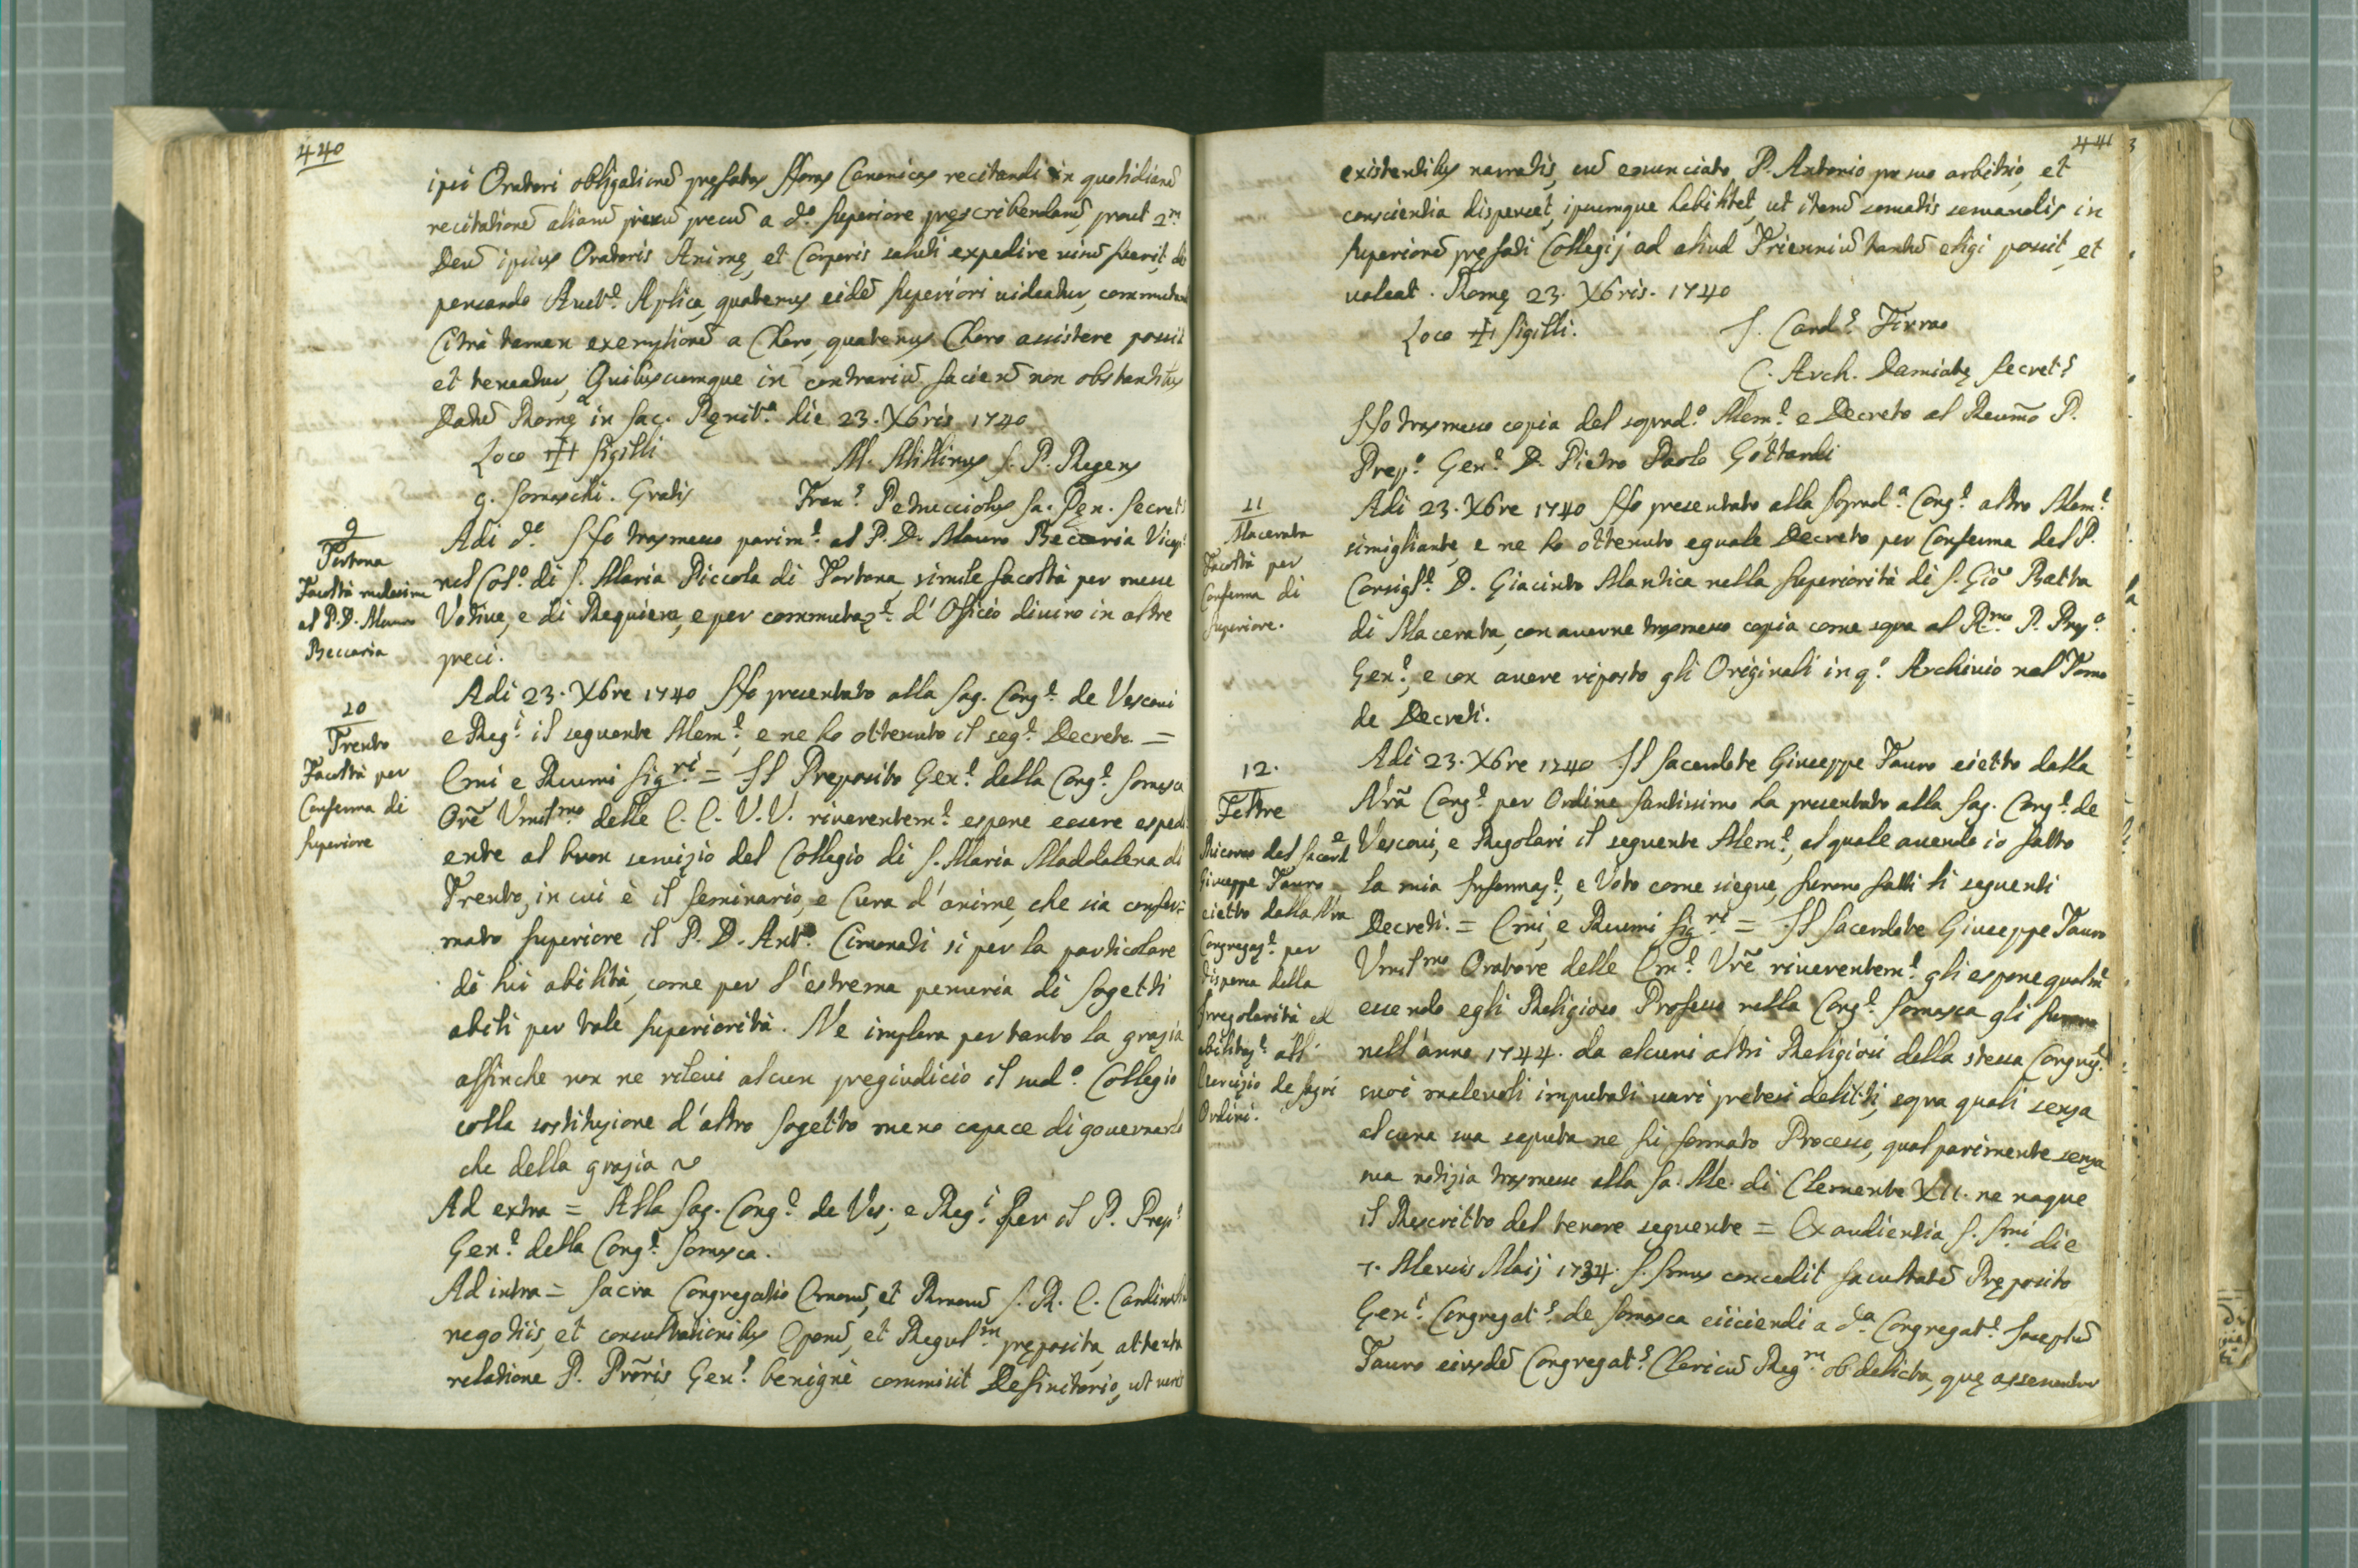 440
ipsi Oratori obligationē pręfatas Horas Canonicas recitandi in quotidianā
recitationē aliarū precū a d.º Superiore pręscribendarū, prout 2.m
Deū ipsius Oratoris Animę, et Corporis saluti expedire visū fuerit, di
pensando Auct.e Aplica, quatenus eidē Superiori videatur, commutandi
Citrà tamen exemptionē a Choro, quatenus Choro assistere possit
et teneatur, Quibuscumque in contrariū facien̄ non obstantibus
Datū Romę in Sac. Pęnit.a die 23. Xbris 1740
Loco ✠ Sigilli M. Millinus S. P. Regens
G. Somaschi. Gratis Fran.s Petrucciolus Sa. Pęn. Secret.s
9
Tortona
Facoltà medesima
al P. D. Mauro
Beccaria
Adi d.º Hò trasmesso parim.e al P. D. Mauro Beccaria Vicep.
nel Col.º di S. Maria Piccola di Tortona simile facoltà per messe
Votive, e di Requiem, e per commutaz.e d'Officio divino in altre
preci.
10
Trento
Facoltà per
Conferma di
Superiore
Adi 23. Xbre 1740 Hò presentato alla Sag. Cong.e de Vescovi
e Reg.i il seguente Mem.e, e ne ho ottenuto il seg.e Decreto =
Emi e Reumi Sig.ri = Il Preposito Gen.e della Cong.e Somasca
Orē Vmil.mo delle E. E. V. V. riverentem.e espone essere espedi
ente al buon servizio del Collegio di S. Maria Maddalena di
Trento, in cui è il Seminario, e Cura d'anime, che sia confer=
mato Superiore il P. D. Ant.º Cimonati si per la particolare
di lui abilità, come per l'estrema penuria di Sogetti
abili per tale Superiorità. Ne implora pertanto la grazia
affinche non ne rilevi alcun pregiudicio il sud.º Collegio
colla sostituzione d'altro Sogetto meno capace di governarlo
che della grazia ~
Ad extra = Alla Sag. Cong.e de Ves. e Reg.i per il P. Prep.
Gen.e della Cong.e Somasca.
Ad intra = Sacra Congregatio Emorū, et Rmorū S. R. E. Cardinaliū
negotiis, et consultationibus Eporū, et Regul.m pręposita, attenta
relatione P. Prōris Gen.s benignè commisit Definitorio, ut veris
441
existentibus narratis, cū enunciato P. Antonio pro suo arbitrio, et
conscientia dispenset, ipsumque habilitet, ut iterū servatis servandis in
Superiorē pręfati Collegij ad aliud Trienniū tantū eligi possit, et
valeat. Romę 23. Xbris. 1740
Loco ✠ Sigilli. S. Card.s Firrao
C. Arch. Damiatę Secret.s
Hò trasmesso copia del soprad.º Mem.e e Decreto al Reum̄o P.
Prep.º Gen.e D. Pietro Paolo Gottardi
11
Macerata
Facoltà per
Conferma di
Superiore.
Adi 23. Xbre 1740 Hò presentato alla Soprad.a Cong.e altro Mem.e
simigliante, e ne ho ottenuto eguale Decreto per Conferma del P.
Consigl.e D. Giacinto Mantica nella Superiorità di S. Giō Batta
di Macerata, con averne trasmesso copia come sopra al R.mo P. Prep.º
Gen.e, e con avere riposto gli Originali in q.º Archivio nel Tomo
de Decreti.
12.
Feltre
Ricorso del Sacerd.e
Giuseppe Tauro
eietto dalla Nr̄a
Congregaz.e per
dispensa della
Irregolarità ed
abilitaz.e all'
Esercizio de Sagri
Ordini.
Adi 23. Xbre 1740 Il Sacerdote Giuseppe Tauro eietto dalla
Nr̄a Cong.e per Ordine Santissimo ha presentato alla Sag. Cong.e de
Vescovi, e Regolari il seguente Mem.e, al quale avendo io fatto
la mia Informaz.e, e Voto come siegue, furono fatti li seguenti
Decreti. = Emi, e Reumi Sig.ri = Il Sacerdote Giuseppe Tauro
Vmil.mo Oratore delle Em.e Vrē riverentem.e gli espone qualm̄
essendo egli Religioso Professo nella Cong.e Somasca gli furono
nell'anno 1744. da alcuni altri Religiosi della stessa Congreg.e
suoi malevoli imputati vari pretesi delitti, sopra quali senza
alcuna sua saputa ne fù formato Processo, qual parimente senza
sua notizia trasmesso alla Sa. Me. di Clemente XII. ne naque
il Rescritto del tenore seguente = Ex audientia S.Smi die
7. Mensis Maij 1734. S. Smus concedit facultatē Pręposito
Gen.i Congregat.s de Somasca eiiciendi a d.a Congregat.e Josephū
Tauro eiusdē Congregat.s Clericū Reg.m ob delicta, quę asseruntur